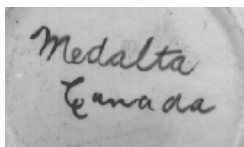 Medalta
Canada